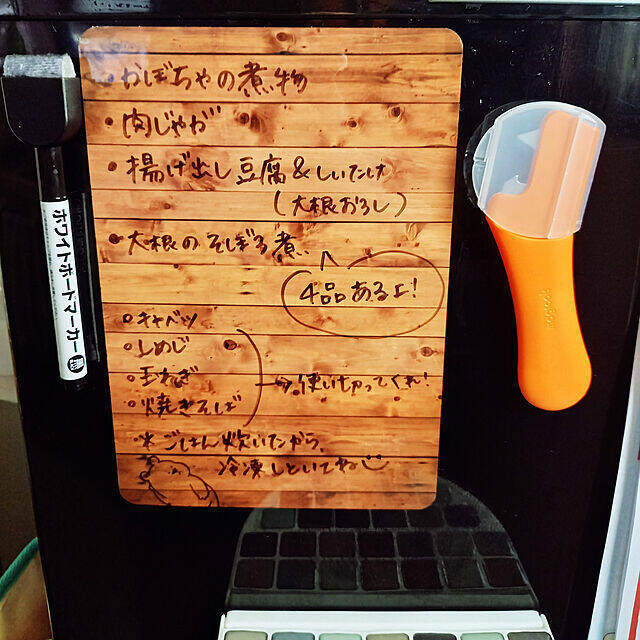 ・かぼちゃの煮物
・肉じゃが
・揚げ出し豆腐&しいたけ
(大根おろし)
・大根のそぼろ煮
4品あるよ!
○キャベツ
○しめじ
○玉ねぎ
○焼きそば
→使い切ってくれ!
※ごはん炊いたから、
冷凍しといてね
ホワイトボードマーカー